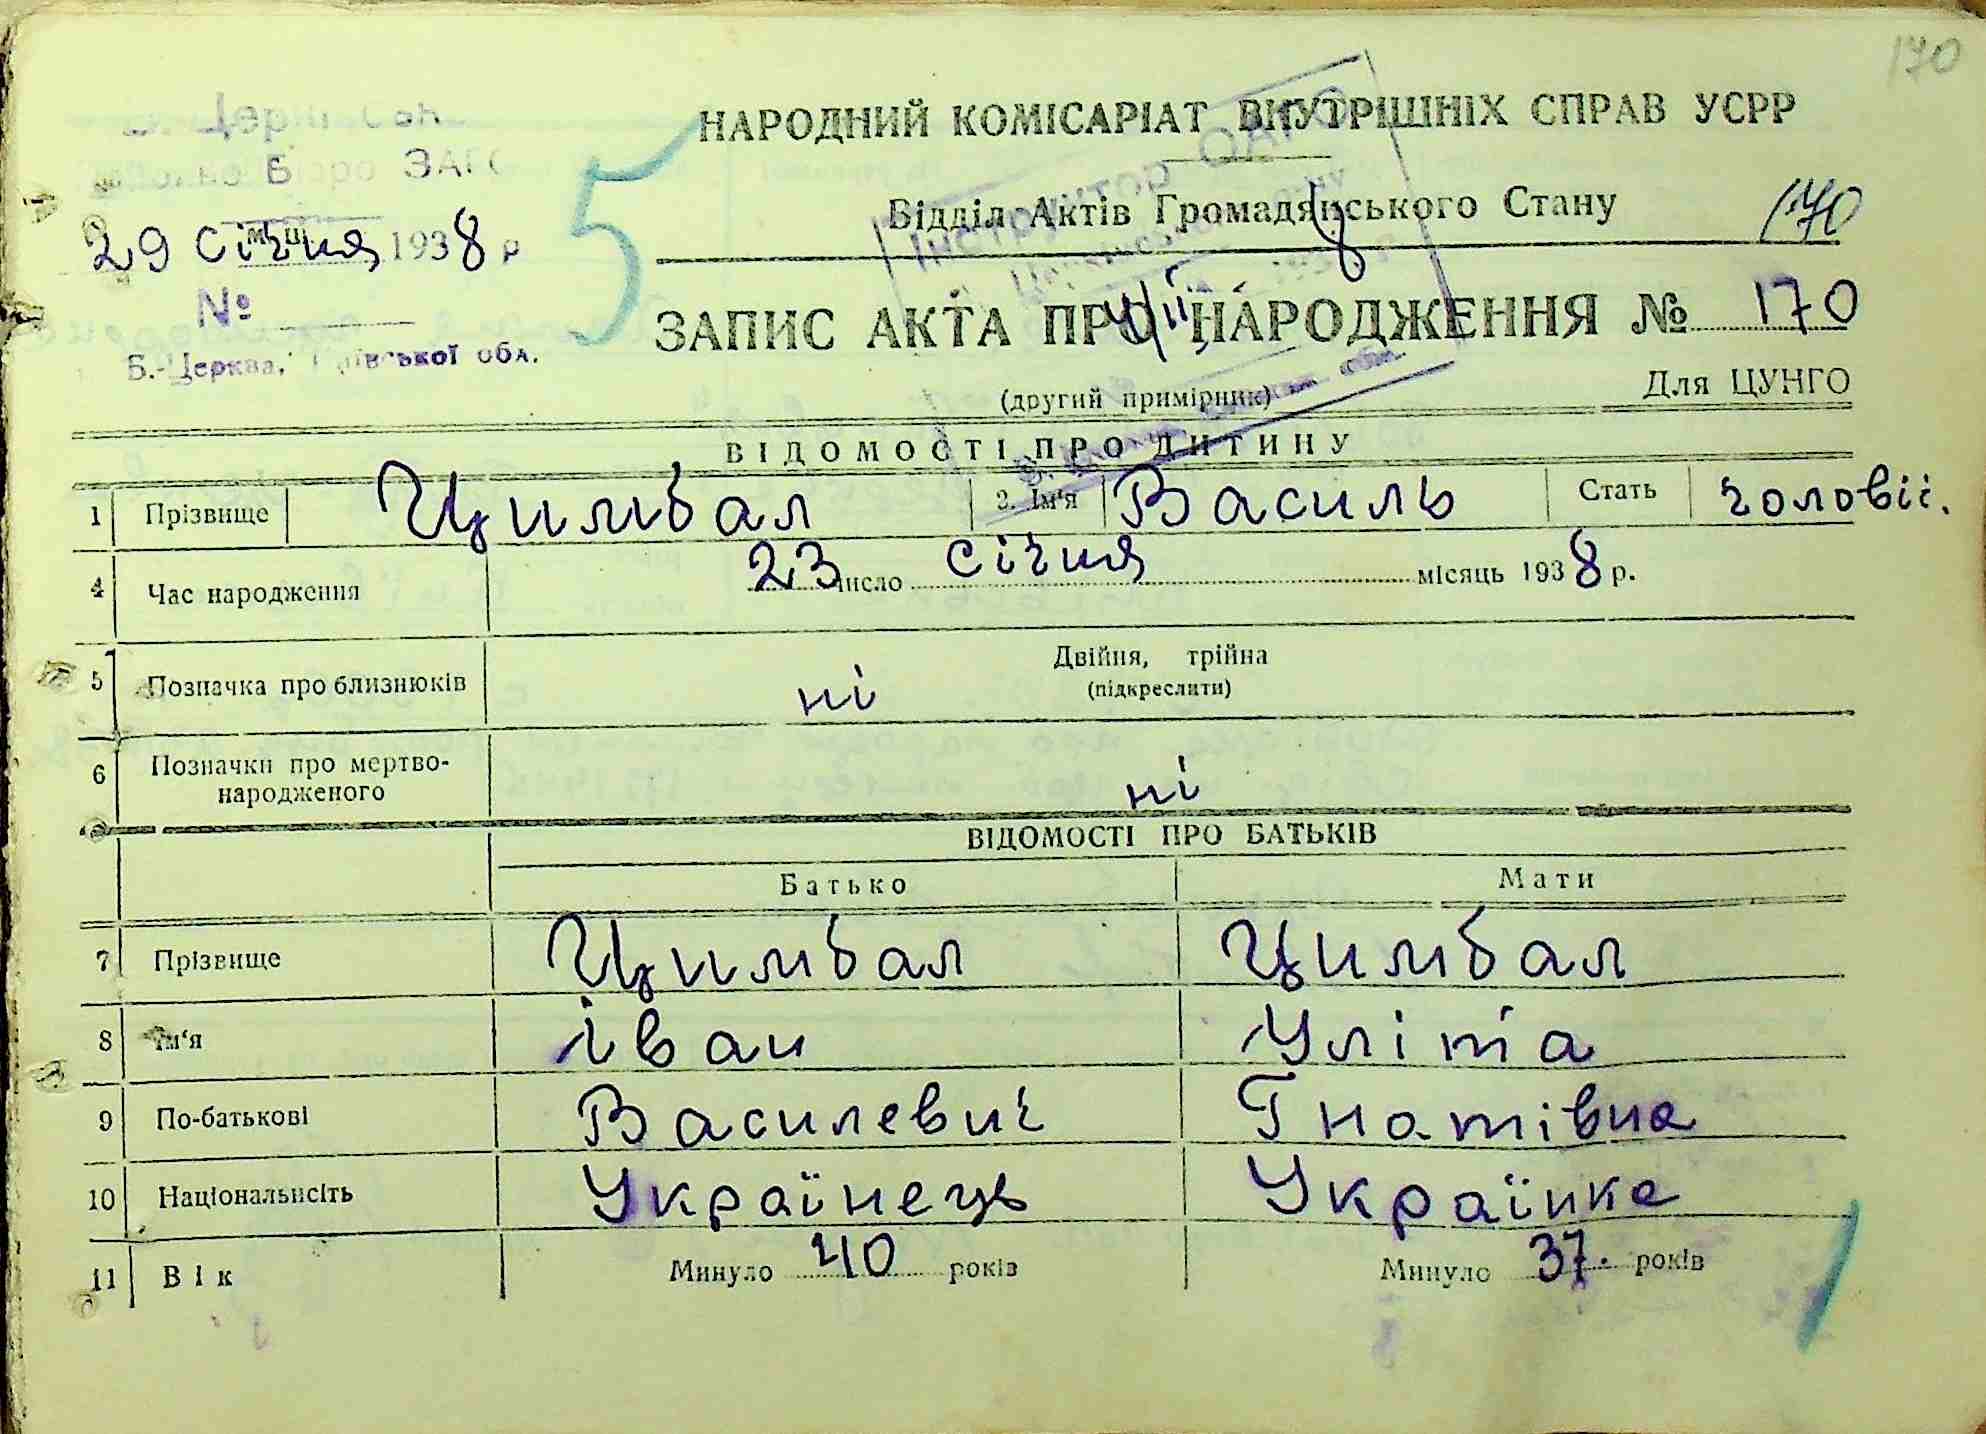 170
НАРОДНИЙ КОМІСАРІАТ ВНУТРІШНІХ СПРАВ УСРР
Відділ Актів Громадянського Стану
170
29 січня 1938 р
№
Б.-Церква, Київської обл.
5
Інструктор ОАГС
ЗАПИС АКТА ПРО НАРОДЖЕННЯ № 170
(другий примірник)
Для ЦУНГО
ВІДОМОСТІ ПРО ДИТИНУ
1 Прізвище Цимбал 2. Ім'я Василь Стать чоловіч.
4 Час народження 23 число січня місяць 1938 р.
5 Позначка про близнюків ні Двійня, трійна
(підкреслити)
6 Позначки про мертво-
народженого ні
ВІДОМОСТІ ПРО БАТЬКІВ
Батько Мати
7 Прізвище Цимбал Цимбал
8 Ім'я Іван Уліта
9 По-батькові Василевич Гнатівна
10 Національність Українець Українка
11 Вік Минуло 40 років Минуло 37. років